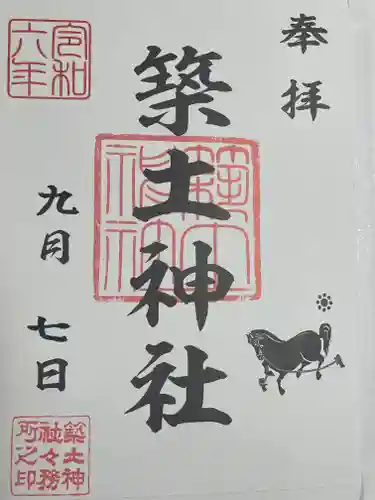 奉拝
築土神社
令和
六年
九月七日
築土神
社々務
所之印